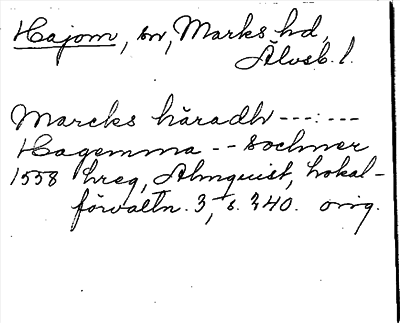 Hajom, sn, Marks hd,
Älvsb. l.
Marcks häradh ---:---
Hagemma -- Sochner
1558 hreg, Almquist, Lokal-
förvaltn. 3, s. 340. orig.